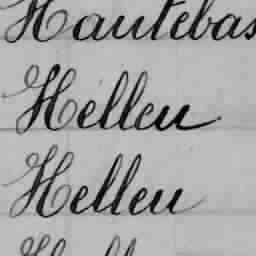 Hautebas
Helleu
Helleu